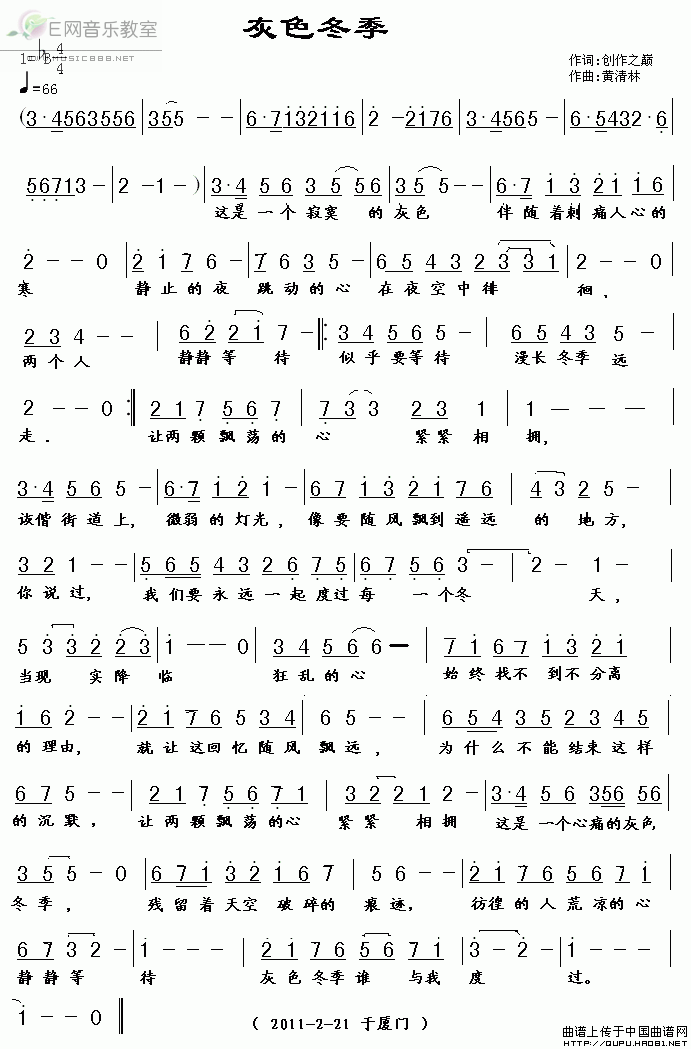 E网音乐教室
灰色冬季
1=♭B 4/4
作词:创作之巅
♩=66
作曲:黄清林
(3·4563556|355--|6·7132116|2-2176|3·4565-|6·5432·6
567 13-|2-1-)|3·4 5 6 3 5 56|3 5 5--|6·7 1 3 2 1 1 6
这是一个寂寞 的灰色 伴随着刺痛人心的
2--0|2 1 7 6-|7 6 3 5-|6 5 4 3 2 3 3 1|2--0
寒 静止的夜 跳动的心 在夜空中徘 徊,
2 3 4--|6 2 2 1 7-‖:3 4 5 6 5-|6 5 4 3 5
两个人 静静等 待 似乎要等待 漫长冬季 远
2--0:‖2 1 7 5 6 7|7 3 3 2 3 1|1———
走. 让两颗飘荡的 心 紧紧相 拥,
3·4 5 6 5-|6·7 1 2 1-|6 7 1 3 2 1 7 6|4 3 2 5-
诙偕街道上, 微弱的灯光, 像要随风飘到遥远 的 地方,
3 2 1--|5 6 5 4 3 2 6 7 5|6 7 5 6 3-|2-1-
你说过, 我们要永远一起度过每 一个冬 天,
5 3 3 2 2 3|1--0|3 4 5 6 6-|7 1 6 7 3 2 1
当现 实降临 狂乱的心 始终找不 到不分离
1 6 2--|2 1 7 6 5 3 4|6 5--|6 5 4 3 5 2 3 4 5
的理由, 就让这回忆随风 飘远, 为什么不能结束这样
6 7 5--|2 1 7 5 6 7 1|3 2 2 1 2-|3·4 5 6 356 56
的沉默, 让两颗飘荡的心 紧紧 相拥 这是一个心痛的灰色,
3 5 5-0|6 7 1 3 2 1 6 7|6 5--|2 1 7 6 5 6 7 1
冬季, 残留着天空破碎的 痕迹, 彷徨的人荒凉的心
6 7 3 2-|1---|6 5 6 7 5 6 7 1|3-2-|1--
静静等 待 灰色冬季谁 与我 度 过。
1--0
( 2011-2-21 于厦门 )
曲谱上传于中国曲谱网
http://QUPU.HAO81.NET